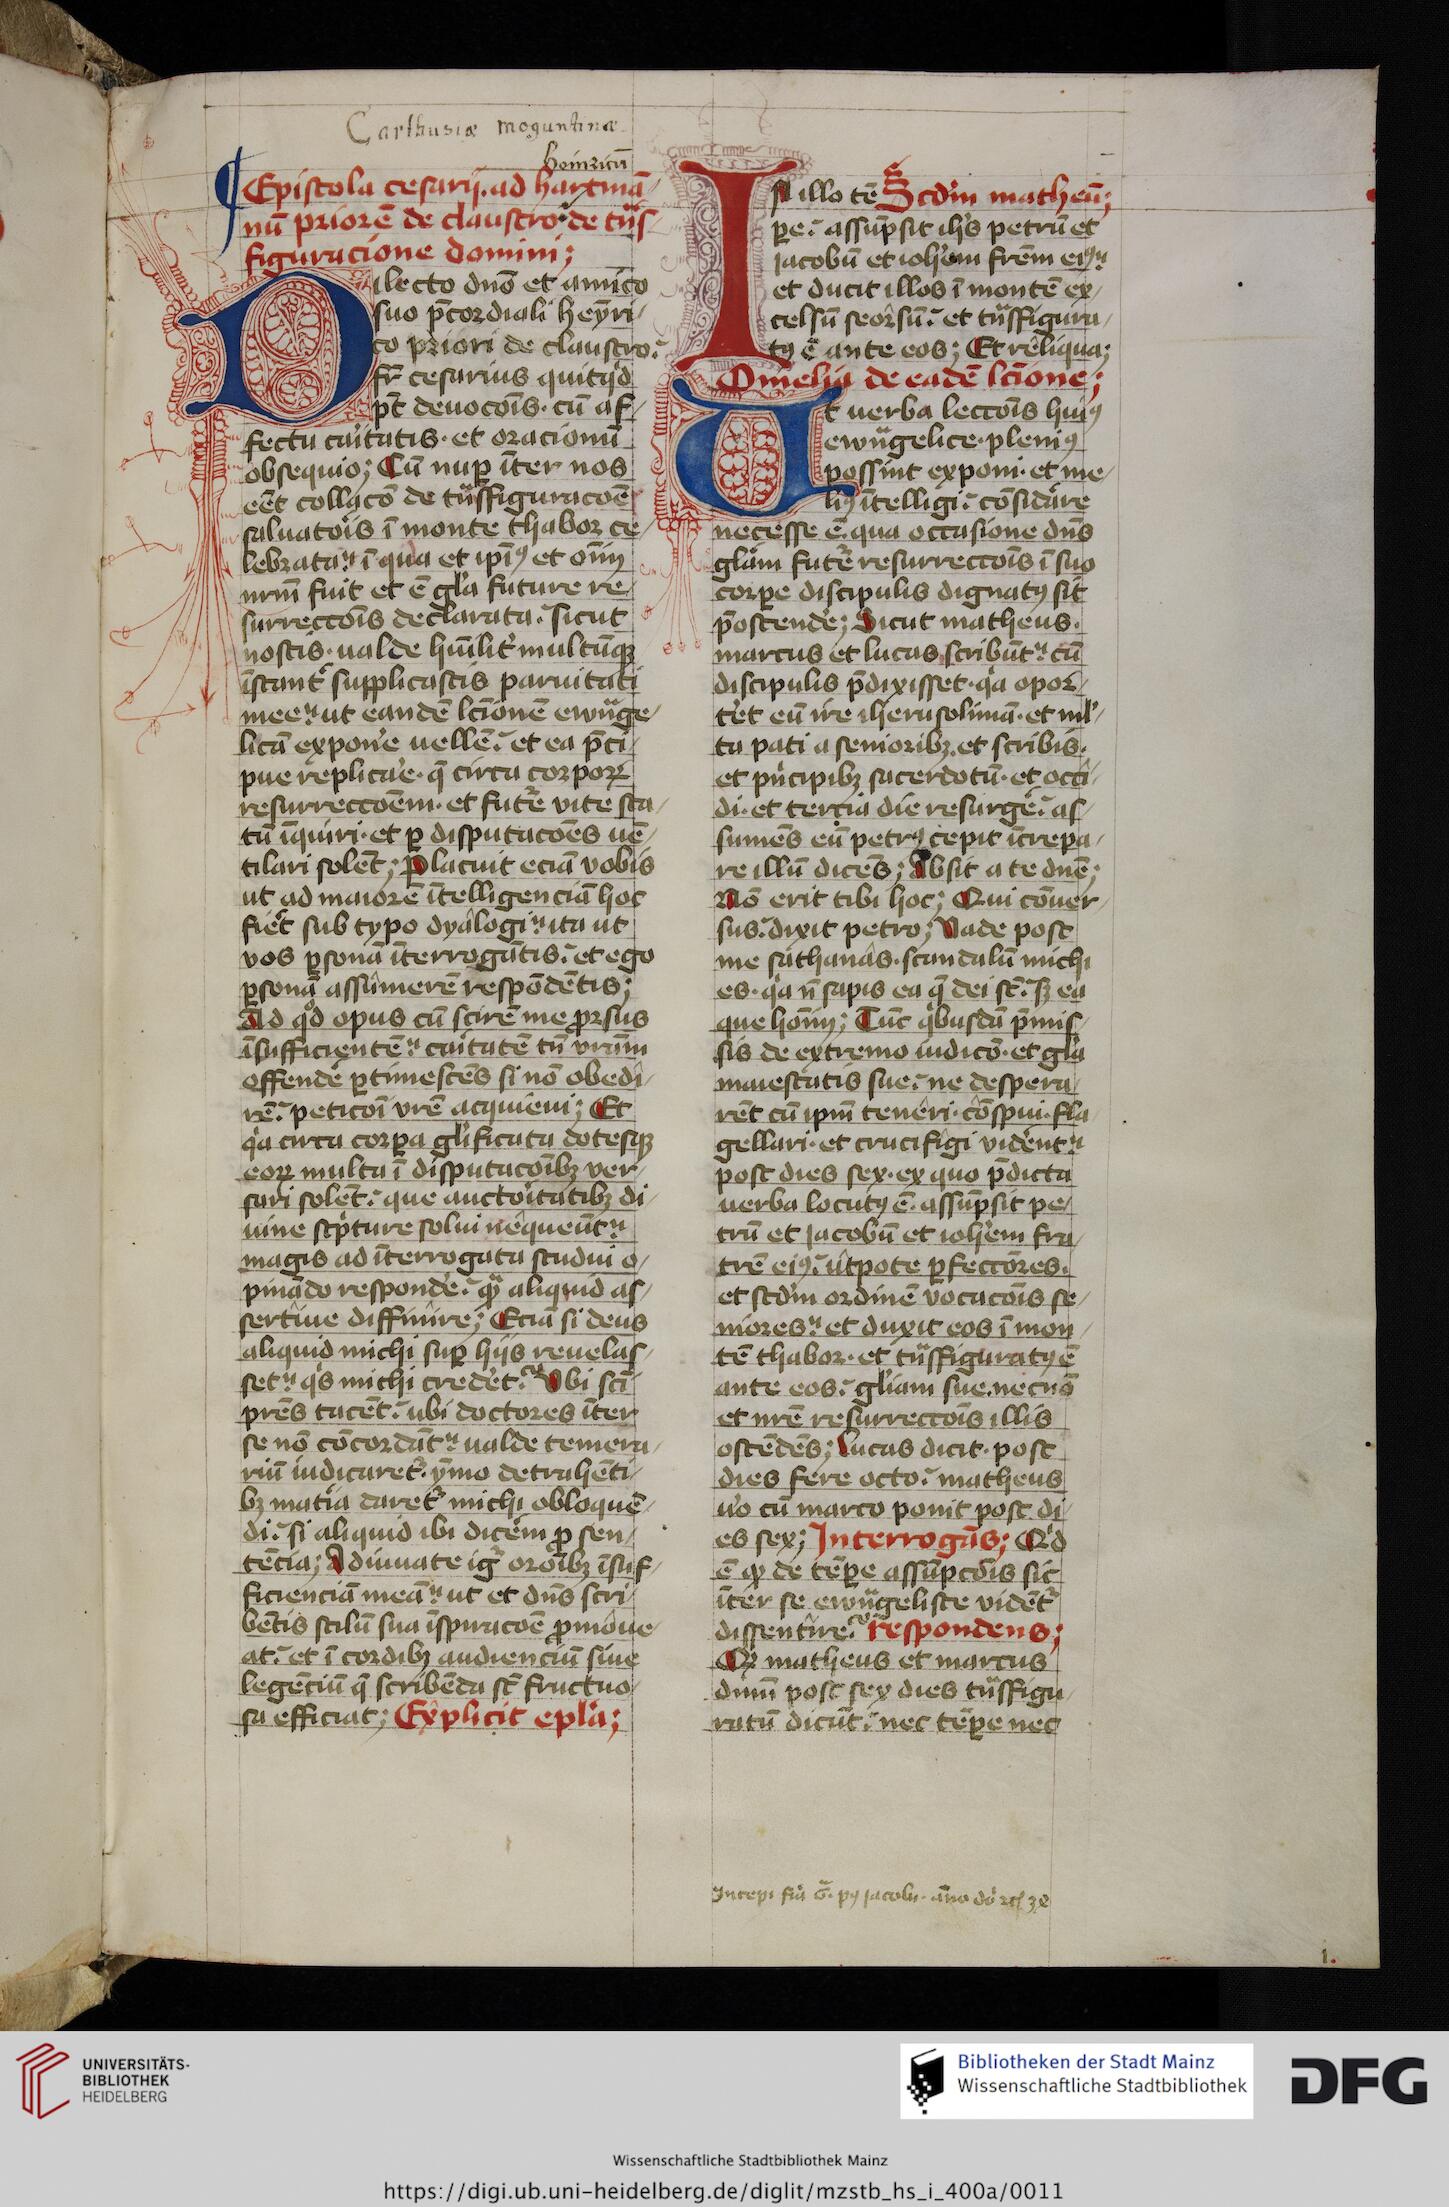 Carthusiæ moguntinæ
heinricū
Epistola cesarij. ad hartmā
nū priorē de claustro. de trās
figuracione domini;
Dilecto dn̄o et amico
suo p̄cordiali heynri
co priori de claustro.
fr̄ cesarius quitq̇d
pt̄ deuocōis. cū af
fectu caritatis. et oracionū
obsequio; Cū nup̱ īter nos
eēt collacō de trāsfiguracōe
saluatoris ī monte thabor ce
lebrata. ī qua et ip̄iꝰ et oīm
nrm̄ fuit et ē gl̄a future re
surreccōis declarata. sicut
nostis. ualde hūilit̄ multūqꝫ
īstant̄ supplicastis paruitati
mee. ut eandē lc̄ionē ewāge
licā expone̾ uellē. et ea p̄ci
pue replicare. q̄ circa corporꝝ
resurreccōem. et futr̄e vite sta
tū īquiri. et p̱ disputacōes uē
tilari solēt; Placuit eciā vobis
ut ad maiorē ītelligenciā hoc
fieret sub typo dyalogi. ita ut
vos p̱sonā īterrogātis. et ego
p̱sonā assūmerē respōdētis;
Ad qd̄ opus cū scirē me prorsus
īsufficientē. caritatē tn̄ vrām
offende̾ p̱timescēs si nō obedi
rē. peticōi vrē acquieui; Et
q̇a circa corpa gl̄ificata dotesqꝫ
eorꝝ multa ī disputacōibꝫ ver
sari solēt. que auctoritatibꝫ di
uine sc̄pture solui nequeūt.
magis ad īterrogata studui o
pinādo responde̾. quā aliquid as
sertiue diffinire; Eciā si deus
aliquid michi sup̱ hijs reuelas
set. q̇s michi crederet. Vbi sc̄i
prēs tacēt. ubi doctores īter
se nō cōcordāt. ualde temera
riū iudicaret̄. ymo detrahēti
bꝫ materia daret̄ michi obloquē
di. si aliquid ibi dicerem pro sen
tēcia; Adiuuate igr̄ orōibꝫ īsuf
ficienciā meā. ut et dn̄s scri
bētis stilū sua īspiracōe promoue
at. et ī cordibꝫ audienciū siue
legēciū q̄ scribēda st̄ fructuo
sa efficiat; Explicit epl̄a;
In illo tē Scd̄m matheū;
pe. assūpsit ih̄s petrū et
jacobū et ioh̄em frēm eiꝰ.
et ducit illos ī montē ex
celsū seorsū. et trāsfigura
tꝰ ē ante eos; Et reliqua;
Omelia de eadē lc̄ione;
Ut uerba leccōis huiꝰ
ewāgelice. pleniꝰ
possint exponi. et me
liꝰ ītelligi. cōsidārre
necesse ē. qua occasione dn̄s
glām futr̄e resurreccōis ī suo
corpe discipulis dignatꝰ sit
p̄ostende̾; Sicut matheus.
marcus et lucas scribūt. cū
discipulis p̄dixisset. q̇a opor
teret eū ire iherusolimā. et ml̄
ta pati a senioribꝫ. et scribis.
et p̄ncipibꝫ sacerdotū. et occi
di. et tercia die resurge̾. as
sumēs eū petrꝰ cepit īcrepa
re illū dicēs; Absit a te dn̄e;
Nō erit tibi hoc; Qui cōuer
sus. dixit petro; Vade post
me sathanas. scandalū michi
es. q̇a n̄ sapis ea q̄ dei st̄. sꝫ ea
que hoīm; Tūc q̇busdā p̄mis
sis de extremo iudicō. et gl̄a
maiestatis sue. ne despera
rēt cū ip̄m teneri. cōspui. fla
gellari. et crucifigi viderēt.
post dies sex. ex quo p̄dicta
uerba locutꝰ ē. assūpsit pe
trū et jacobū et ioh̄em fra
trē eiꝰ. utpote p̱fectōres.
et scd̄m ordinē vocacōis se
niores. et duxit eos ī mon
tē thabor. et trāsfiguratꝰ ē
ante eos. gl̄iam sue. necnō
et nrē resurreccōis illis
ostēdēs; Lucas dicit. post
dies fere octo. matheus
uo cū marco ponit post di
es sex; Interrogās; Qd̄
ē qd̄ de tēpe assūpcōis sic
īter se ewāgeliste vidēt̄
dissentire. respondens;
Qꝫ matheus et marcus
dn̄m post sex dies trāsfigu
ratū dicūt. nec tēpe nec
Incepi jacobi. anno
1.
UNIVERSITÄTS-
BIBLIOTHEK
HEIDELBERG
Bibliotheken der Stadt Mainz
Wissenschaftliche Stadtbibliothek
DFG
Wissenschaftliche Stadtbibliothek Mainz
https://digi.ub.uni-heidelberg.de/diglit/mzstb_hs_i_400a/0011